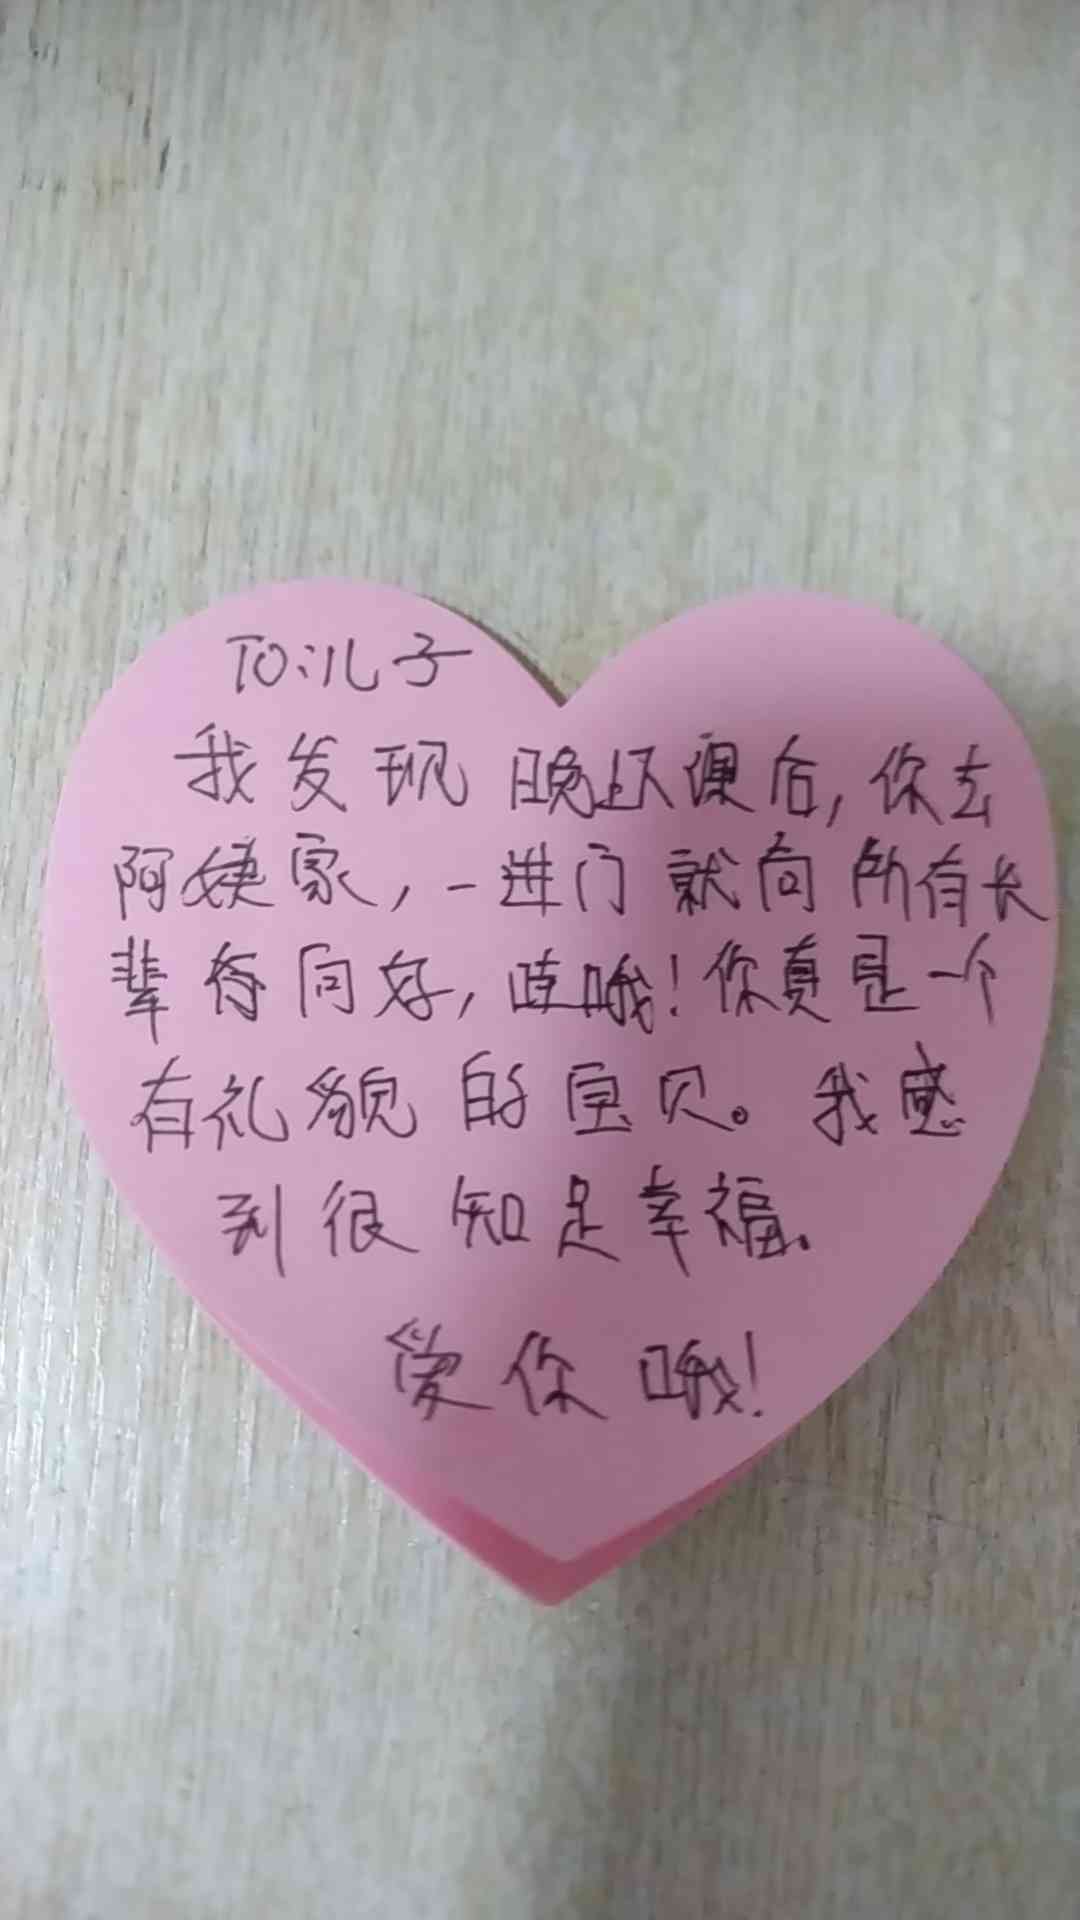 TO:儿子
我发现晚托课后,你去
阿姨家,一进门就向所有长
辈存问好,真哦!你真是一个
有礼貌的宝贝。我感
到很知足幸福。
爱你哦!